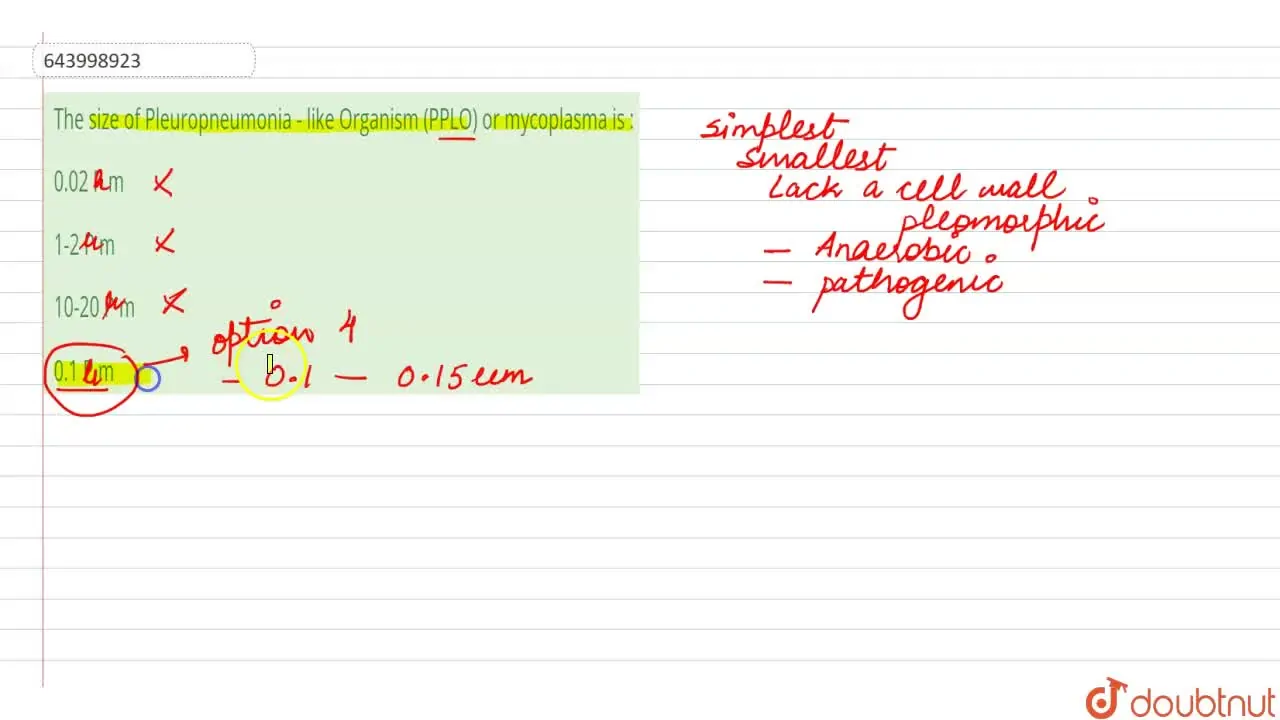 643998923
The size of Pleuropneumonia - like Organism (PPLO) or mycoplasma is :
0.02 m X
1-2 m X
10-20 m X
option 4
0.1 m
- 0.1 - 0.15 um
simplest
smallest
Lack a cell wall
pleomorphic
- Anaerobic
- pathogenic
doubtnut